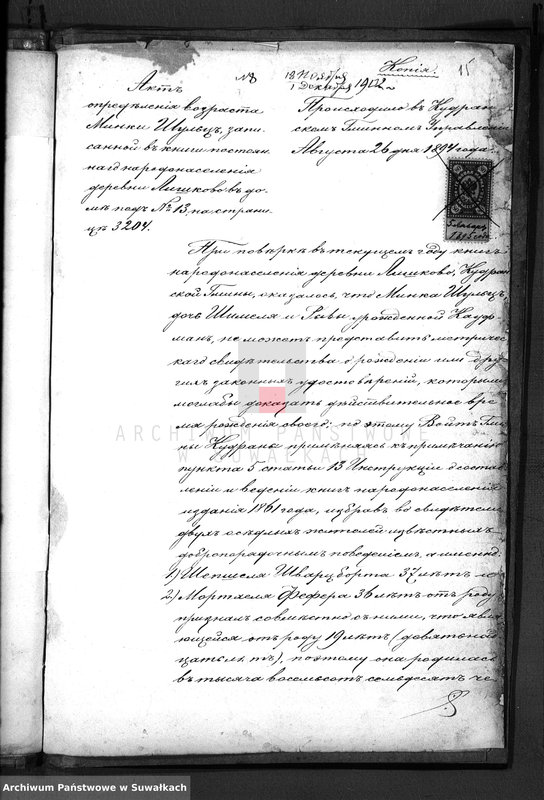 Копія.
15
№ 8
18 Ноября
1 Декабря 1902 г.
Актъ
опредѣленія возраста
Минки Шульцъ, запи-
санной въ книги постоян-
наго народонаселенія
деревни Лишково въ до-
мѣ подъ № 13 на страни-
цѣ 3204.
Происходило въ Кудран-
скомъ Гминномъ Управленіи
Августа 26 дня 1894 года.
При повѣркѣ въ текущемъ году книгъ
народонаселенія деревни Лишково, Кудран-
ской Гмины, оказалось, что Минка Шульцъ,
дочь Шимеля и Ривы урожденной Кауф-
манъ, не можетъ представить метричес-
каго свидѣтельства о рожденіи или дру-
гихъ законныхъ удостовѣреній, которыми
могла бы доказать дѣйствительное вре-
мя рожденія своего; по этому Войтъ Гми-
ны Кудраны примѣняясь къ примѣчанію
пункта 5 статьи 13 Инструкціи о состав-
леніи и веденіи книгъ народонаселенія
изданія 1861 года, избравъ во свидѣтели
двухъ осѣдлыхъ жителей извѣстныхъ
добропорядочнымъ поведеніемъ, а именно:
1) Шепшеля Шварцборта 37 лѣтъ и
2) Мортхеля Фефера 36 лѣтъ отъ роду
призналъ совмѣстно съ ними, что явля-
ющейся отъ роду 19 лѣтъ (девятьнад-
цать лѣтъ), поэтому она родилась
въ тысяча восемьсотъ семьдесятъ че-
ARCHIWUM PAŃSTWOWE
W SUWAŁKACH
Archiwum Państwowe w Suwałkach